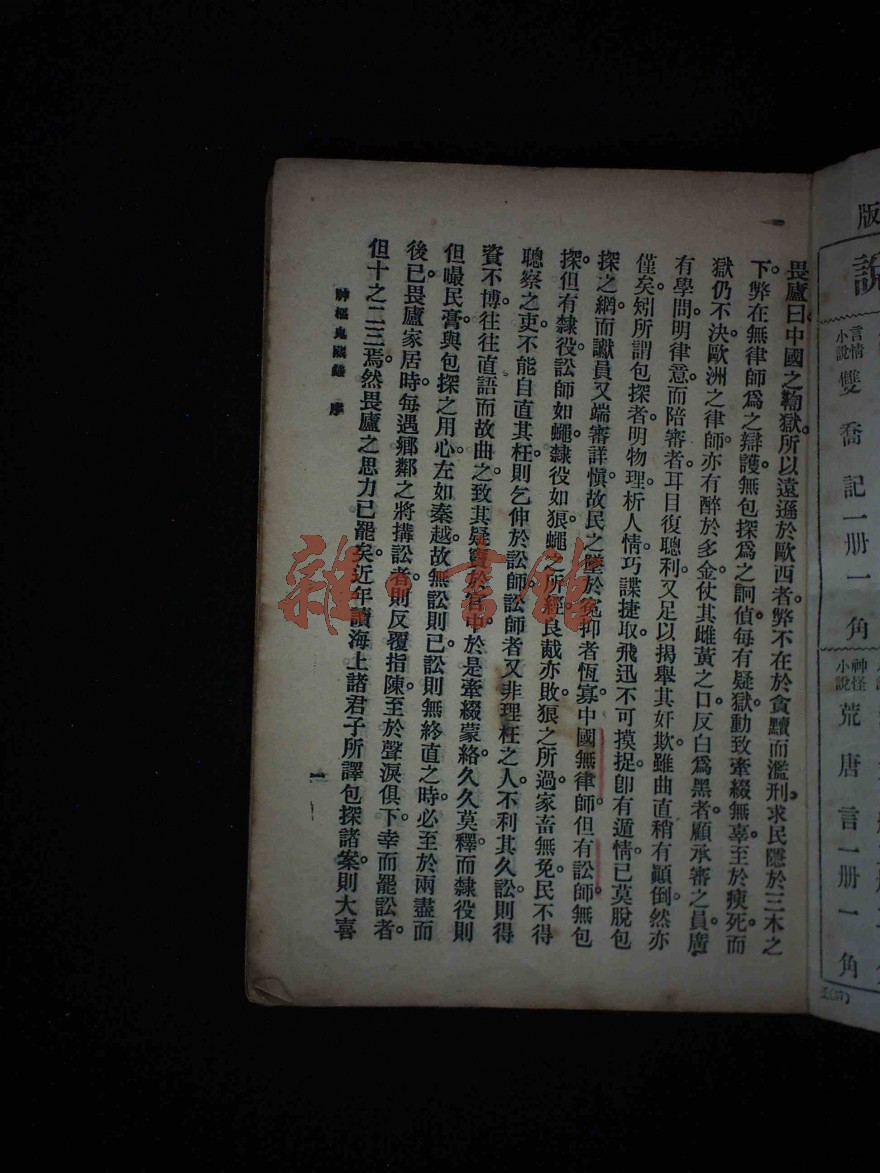 畏廬曰中國之鞫獄所以遠遜於歐西者。弊不在於貪黷而濫刑。求民隱於三木之
下。弊在無律師爲之辯護。無包探爲之詗偵。每有疑獄。動致牽綴無辜。至於瘐死。而
獄仍不決。歐洲之律師。亦有醉於多金。仗其雌黃之口。反白爲黑者。顧承審之員。廣
有學問。明律意。而陪審者。耳目復聰利。又足以揭舉其奸欺。雖曲直稍有顚倒。然亦
僅矣。矧所謂包探者。明物理。析人情。巧諜捷取。飛迅不可摸捉。卽有遁情。已莫脫包
探之網。而讞員又端審詳愼。故民之墮於冤抑者恆寡。中國無律師。但有訟師。無包
探。但有隸役。訟師如蠅。隸役如狼。蠅之所經。良胾亦敗。狼之所過。家畜無免。民不得
聰察之吏。不能自直其枉。則乞伸於訟師。訟師者又非理枉之人。不利其久訟。則得
資不博。往往直語而故曲之。致其疑竇於官中。於是牽綴蒙絡。久久莫釋。而隸役則
但嘬民膏。與包探之用心。左如秦越。故無訟則已。訟則無終直之時。必至於兩盡而
後已。畏廬家居時。每遇鄉鄰之將搆訟者。則反覆指陳。至於聲淚俱下。幸而罷訟者。
但十之二三焉。然畏廬之思力已罷矣。近年讀海上諸君子所譯包探諸案。則大喜
神樞鬼藏錄 序
一
版
說
言情小說 雙喬記一册一角
神怪小說 荒唐言一册一角
雜·書館